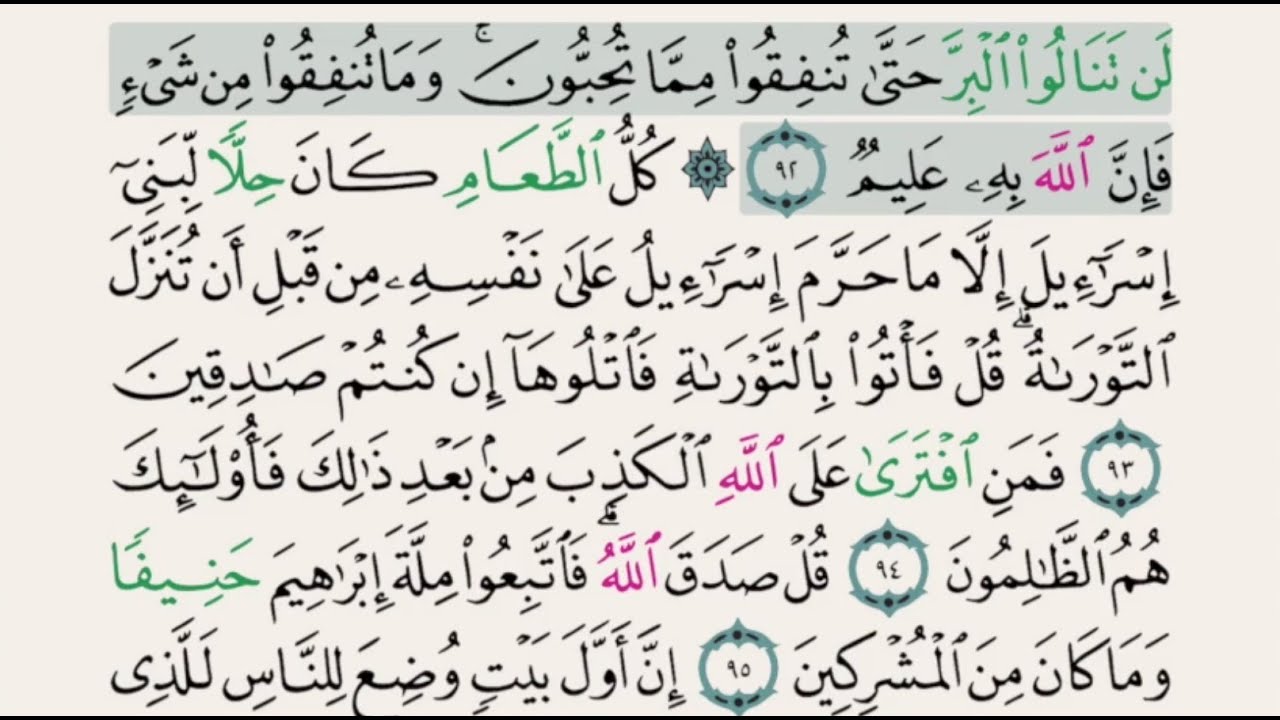 لَن تَنَالُوا۟ ٱلْبِرَّ حَتَّىٰ تُنفِقُوا۟ مِمَّا تُحِبُّونَ ۚ وَمَا تُنفِقُوا۟ مِن شَىْءٍ
فَإِنَّ ٱللَّهَ بِهِۦ عَلِيمٌ ٩٢ ۞ كُلُّ ٱلطَّعَامِ كَانَ حِلًّا لِّبَنِىٓ
إِسْرَٰٓءِيلَ إِلَّا مَا حَرَّمَ إِسْرَٰٓءِيلُ عَلَىٰ نَفْسِهِۦ مِن قَبْلِ أَن تُنَزَّلَ
ٱلتَّوْرَىٰةُ ۗ قُلْ فَأْتُوا۟ بِٱلتَّوْرَىٰةِ فَٱتْلُوهَآ إِن كُنتُمْ صَٰدِقِينَ
٩٣ فَمَنِ ٱفْتَرَىٰ عَلَى ٱللَّهِ ٱلْكَذِبَ مِنۢ بَعْدِ ذَٰلِكَ فَأُو۟لَٰٓئِكَ
هُمُ ٱلظَّٰلِمُونَ ٩٤ قُلْ صَدَقَ ٱللَّهُ ۗ فَٱتَّبِعُوا۟ مِلَّةَ إِبْرَٰهِيمَ حَنِيفًا
وَمَا كَانَ مِنَ ٱلْمُشْرِكِينَ ٩٥ إِنَّ أَوَّلَ بَيْتٍ وُضِعَ لِلنَّاسِ لَلَّذِى